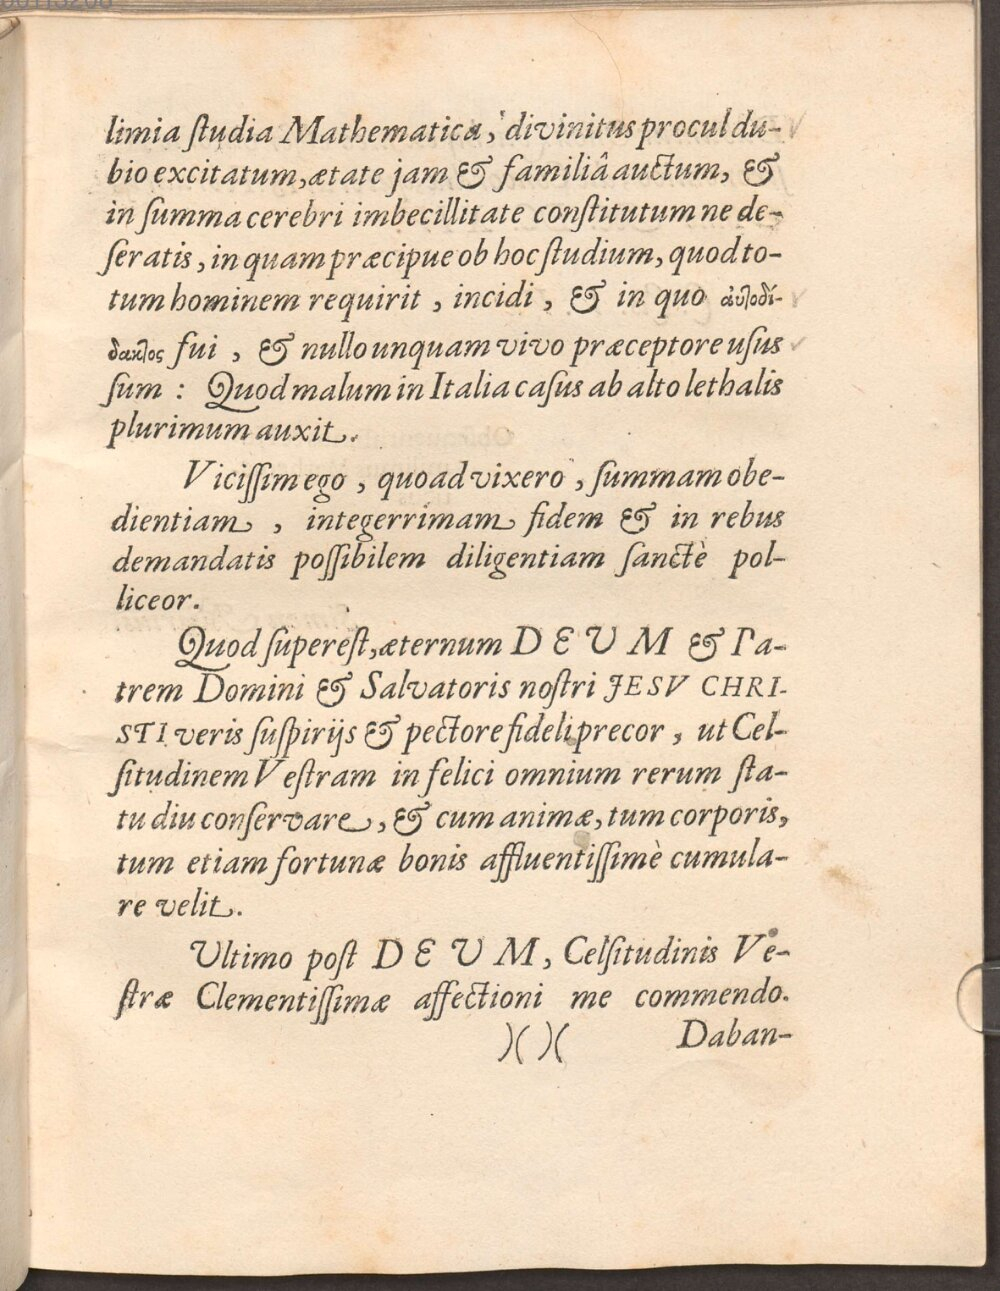 limia studia Mathematica, divinitus procul du-
bio excitatum, ætate jam & familiâ auctum, &
in summa cerebri imbecillitate constitutum ne de-
seratis, in quam præcipue ob hoc studium, quod to-
tum hominem requirit, incidi, & in quo αὐτοδί-
δακτος fui, & nullo unquam vivo præceptore usus
sum: Quod malum in Italia casus ab alto lethalis
plurimum auxit.
Vicissim ego, quoad vixero, summam obe-
dientiam, integerrimam fidem & in rebus
demandatis possibilem diligentiam sanctè pol-
liceor.
Quod superest, æternum DEUM & Pa-
trem Domini & Salvatoris nostri JESV CHRI-
STI veris suspirijs & pectore fideli precor, ut Cel-
situdinem Vestram in felici omnium rerum sta-
tu diu conservare, & cum animæ, tum corporis,
tum etiam fortunæ bonis affluentissimè cumula-
re velit.
Ultimo post DEUM, Celsitudinis Ve-
stræ Clementissimæ affectioni me commendo.
)( )( Daban-